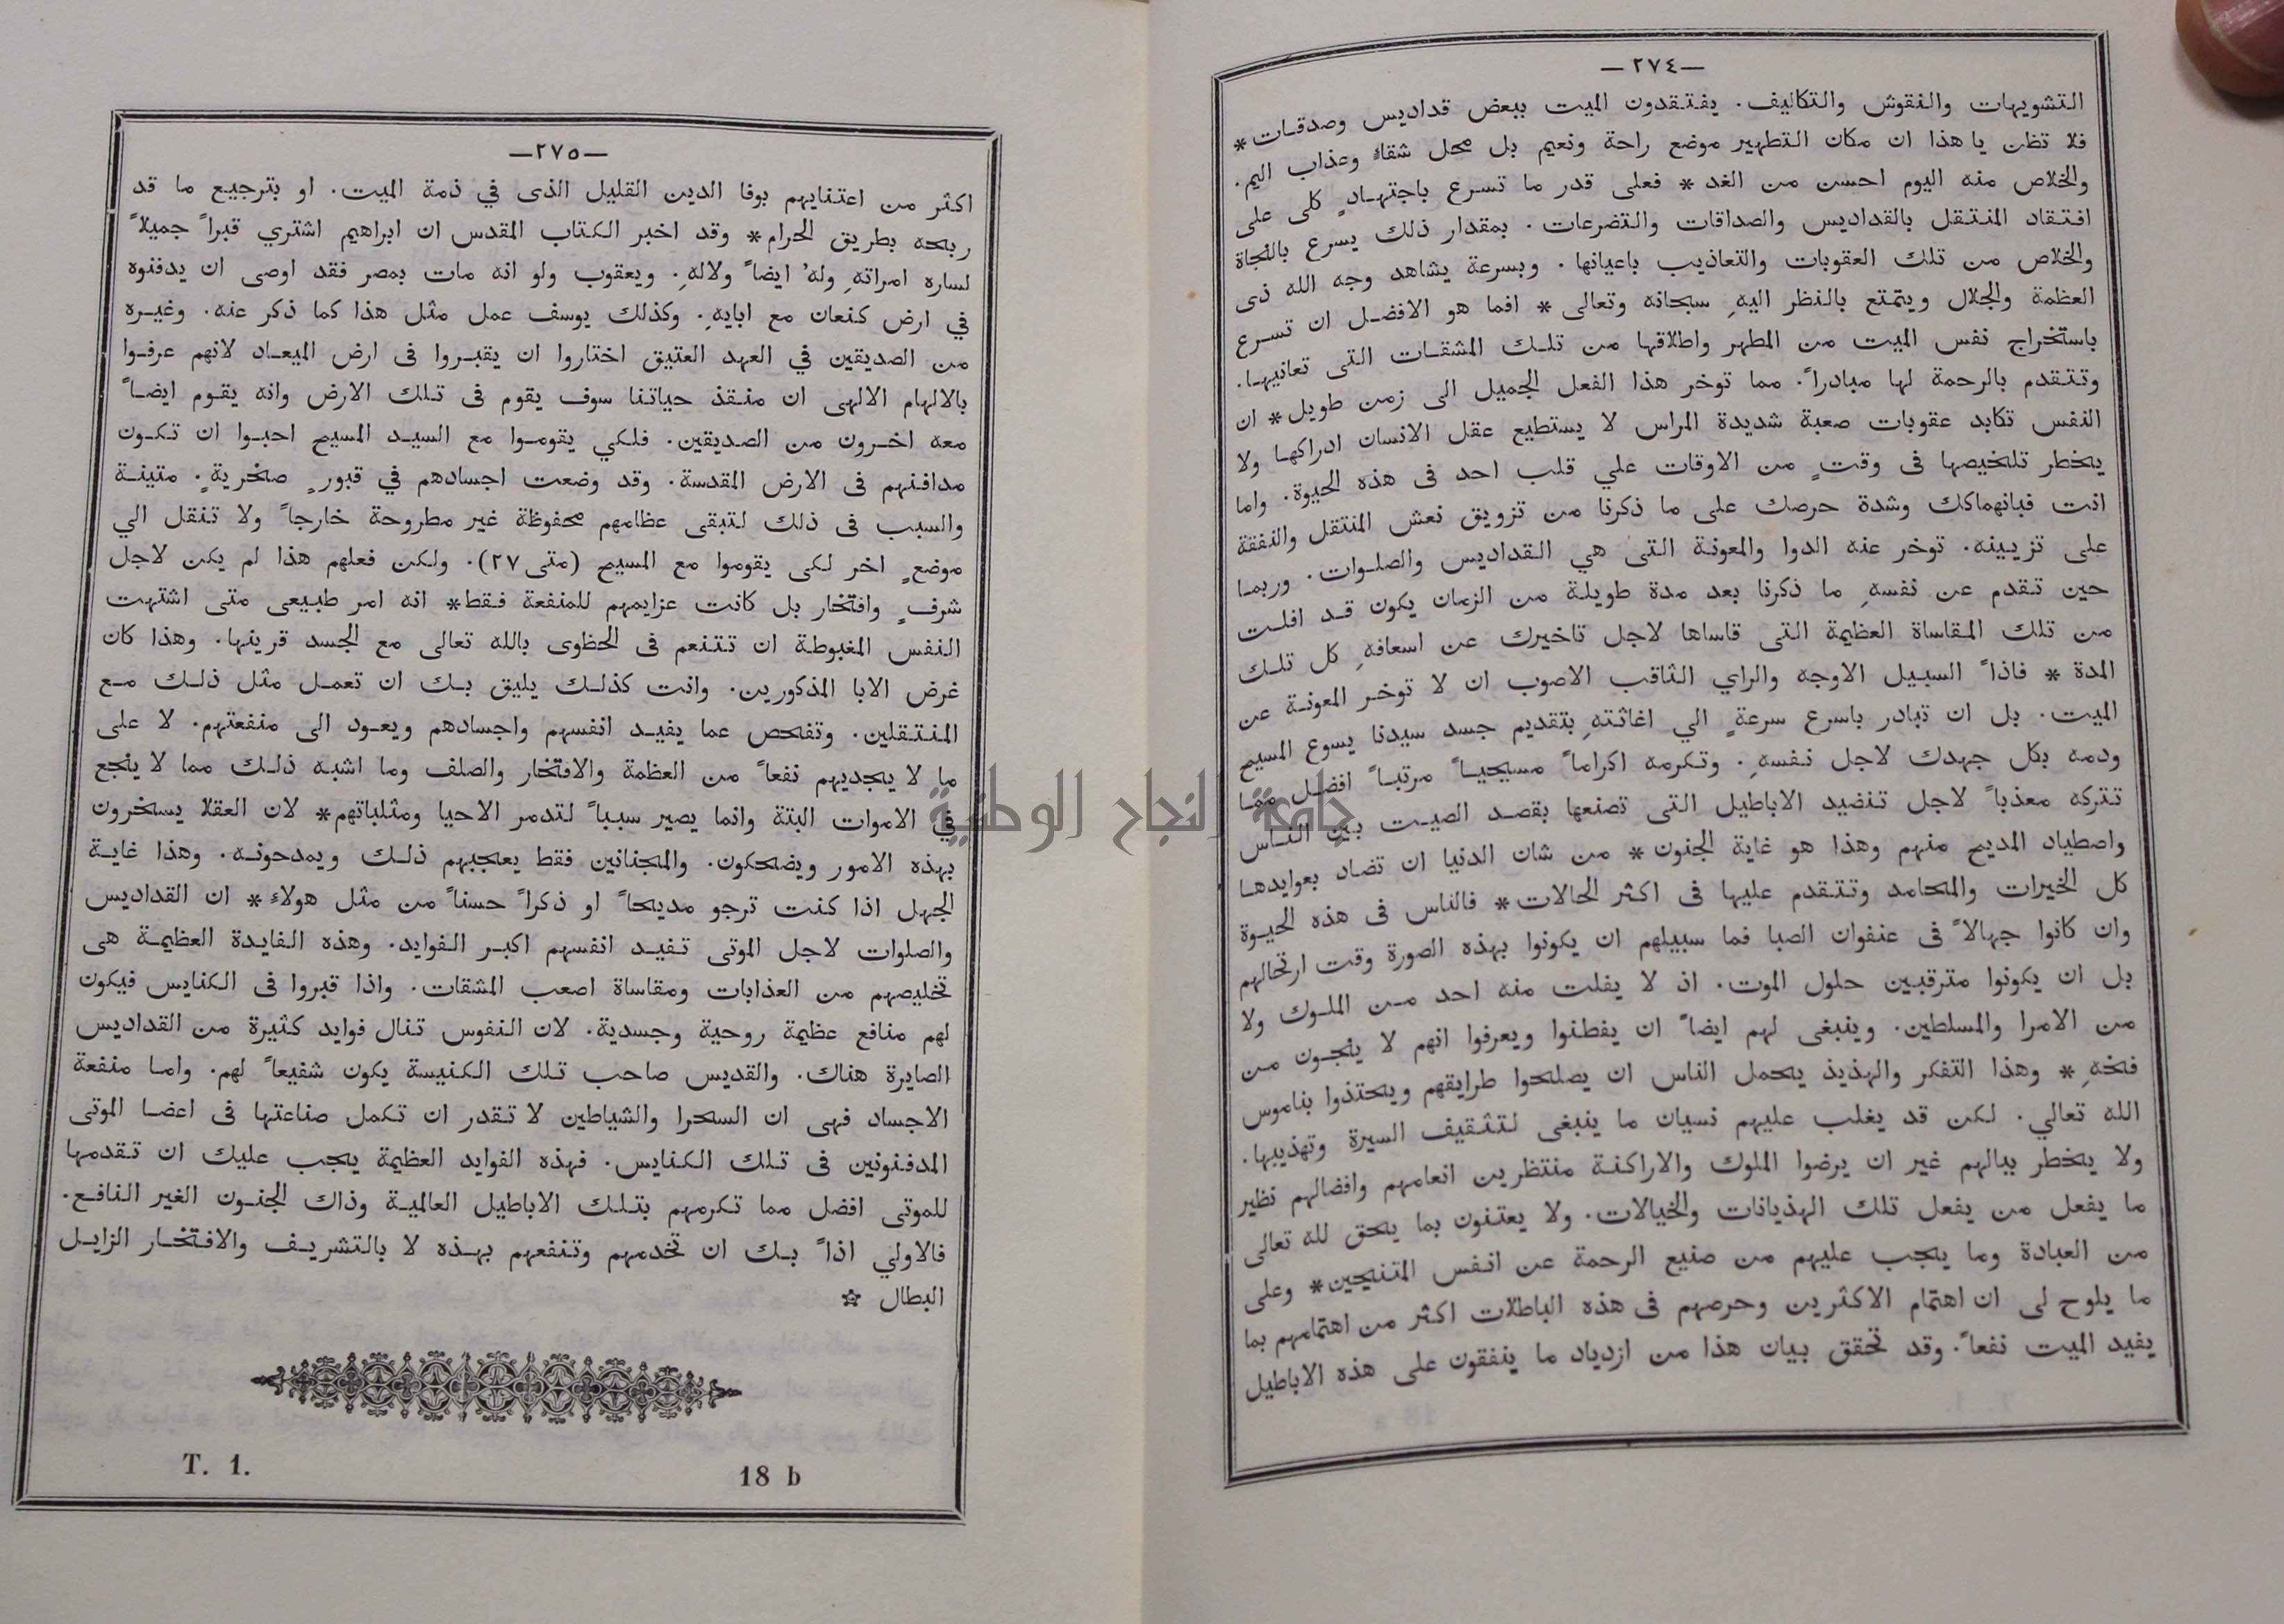 —٢٧٤—
التشويهات والنقوش والتكاليف. يفتقدون الميت ببعض قداديس وصدقات*
فلا تظن يا هذا ان مكان التطهير موضع راحة ونعيم بل محل شقاءٍ وعذاب اليم.
والخلاص منه اليوم احسن من الغد* فعلى قدر ما تسرع باجتهادٍ كلى على
افتقاد المنتقل بالقداديس والصداقات والتضرعات. بمقدار ذلك يسرع بالنجاة
والخلاص من تلك العقوبات والتعاذيب باعيانها. وبسرعة يشاهد وجه الله ذى
العظمة والجلال ويتمتع بالنظر اليهِ سبحانه وتعالى* افما هو الافضل ان تسرع
باستخراج نفس الميت من المطهر واطلاقها من تلك المشقات التى تعانيها.
وتتقدم بالرحمة لها مبادراً. مما توخر هذا الفعل الجميل الى زمن طويل* ان
النفس تكابد عقوبات صعبة شديدة المراس لا يستطيع عقل الانسان ادراكها ولا
يخطر تلخيصها فى وقتٍ من الاوقات علي قلب احد فى هذه الحيوة. واما
انت فبانهماكك وشدة حرصك على ما ذكرنا من تزويق نعش المنتقل والنفقة
على تزيينه. توخر عنه الدوا والمعونة التى هي القداديس والصلوات. وربما
حين تقدم عن نفسهِ ما ذكرنا بعد مدة طويلة من الزمان يكون قد افلت
من تلك المقاساة العظيمة التى قاساها لاجل تاخيرك عن اسعافهِ كل تلك
المدة* فاذاً السبيل الاوجه والراي الثاقب الاصوب ان لا توخر المعونة عن
الميت. بل ان تبادر باسرع سرعةٍ الي اغاثتهِ بتقديم جسد سيدنا يسوع المسيح
ودمه بكل جهدك لاجل نفسهِ. وتكرمه اكراماً مسيحياً مرتباً افضل مما
تتركه معذباً لاجل تنضيد الاباطيل التى تصنعها بقصد الصيت بين الناس
واصطياد المديح منهم وهذا هو غاية الجنون* من شان الدنيا ان تضاد بعوايدها
كل الخيرات والمحامد وتتقدم عليها فى اكثر الحالات* فالناس فى هذه الحيوة
وان كانوا جهالاً فى عنفوان الصبا فما سبيلهم ان يكونوا بهذه الصورة وقت ارتحالهم
بل ان يكونوا مترقبين حلول الموت. اذ لا يفلت منه احد من الملوك ولا
من الامرا والمسلطين. وينبغى لهم ايضاً ان يفطنوا ويعرفوا انهم لا ينجون من
فخهِ* وهذا التفكر والهذيذ يحمل الناس ان يصلحوا طرايقهم ويحتذوا بناموس
الله تعالي. لكن قد يغلب عليهم نسيان ما ينبغى لتثقيف السيرة وتهذيبها.
ولا يخطر ببالهم غير ان يرضوا الملوك والاراكنة منتظرين انعامهم وافضالهم نظير
ما يفعل من يفعل تلك الهذيانات والخيالات. ولا يعتنون بما يحق لله تعالى
من العبادة وما يجب عليهم من صنيع الرحمة عن انفس المتنيحين* وعلى
ما يلوح لى ان اهتمام الاكثرين وحرصهم فى هذه الباطلات اكثر من اهتمامهم بما
يفيد الميت نفعاً. وقد تحقق بيان هذا من ازدياد ما ينفقون على هذه الاباطيل
—٢٧٥—
اكثر من اعتنايهم بوفا الدين القليل الذى في ذمة الميت. او بترجيع ما قد
ربحه بطريق الحرام* وقد اخبر الكتاب المقدس ان ابراهيم اشتري قبراً جميلاً
لساره امراتهِ ولهُ ايضاً ولالهِ. ويعقوب ولو انه مات بمصر فقد اوصى ان يدفنوه
في ارض كنعان مع ابايهِ. وكذلك يوسف عمل مثل هذا كما ذكر عنه. وغيره
من الصديقين في العهد العتيق اختاروا ان يقبروا فى ارض الميعاد لانهم عرفوا
بالالهام الالهى ان منقذ حياتنا سوف يقوم فى تلك الارض وانه يقوم ايضاً
معه اخرون من الصديقين. فلكي يقوموا مع السيد المسيح احبوا ان تكون
مدافنهم فى الارض المقدسة. وقد وضعت اجسادهم في قبورٍ صخريةٍ. متينة
والسبب فى ذلك لتبقى عظامهم محفوظة غير مطروحة خارجاً ولا تنقل الي
موضعٍ اخر لكى يقوموا مع المسيح (متى ٢٧). ولكن فعلهم هذا لم يكن لاجل
شرفٍ وافتخار بل كانت عزايمهم للمنفعة فقط* انه امر طبيعى متى اشتهت
النفس المغبوطة ان تتنعم فى الحظوى بالله تعالى مع الجسد قرينها. وهذا كان
غرض الابا المذكورين. وانت كذلك يليق بك ان تعمل مثل ذلك مع
المنتقلين. وتفحص عما يفيد انفسهم واجسادهم ويعود الى منفعتهم. لا على
ما لا يجديهم نفعاً من العظمة والافتخار والصلف وما اشبه ذلك مما لا ينجع
في الاموات البتة وانما يصير سبباً لتدمر الاحيا ومثلباتهم* لان العقلا يسخرون
بهذه الامور ويضحكون. والمجنانين فقط يعجبهم ذلك ويمدحونه. وهذا غاية
الجهل اذا كنت ترجو مديحاً او ذكراً حسناً من مثل هولاءِ* ان القداديس
والصلوات لاجل الموتى تفيد انفسهم اكبر الفوايد. وهذه الفايدة العظيمة هى
تخليصهم من العذابات ومقاساة اصعب المشقات. واذا قبروا فى الكنايس فيكون
لهم منافع عظيمة روحية وجسدية. لان النفوس تنال فوايد كثيرة من القداديس
الصايرة هناك. والقديس صاحب تلك الكنيسة يكون شفيعاً لهم. واما منفعة
الاجساد فهى ان السحرا والشياطين لا تقدر ان تكمل صناعتها فى اعضا الموتى
المدفنونين فى تلك الكنايس. فهذه الفوايد العظيمة يجب عليك ان تقدمها
للموتى افضل مما تكرمهم بتلك الاباطيل العالمية وذاك الجنون الغير النافع.
فالاولي اذاً بك ان تخدمهم وتنفعهم بهذه لا بالتشريف والافتخار الزايل
البطال ☆
T. 1. 18 b
جامعة النجاح الوطنية